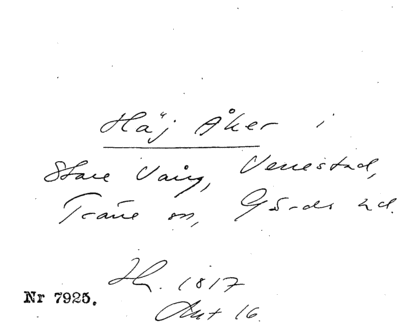 Häj Åker i
Store Vång, Venestad,
Träne sn, Gärds hd.
Hs. 1817
Akt 16.
Nr 7925.